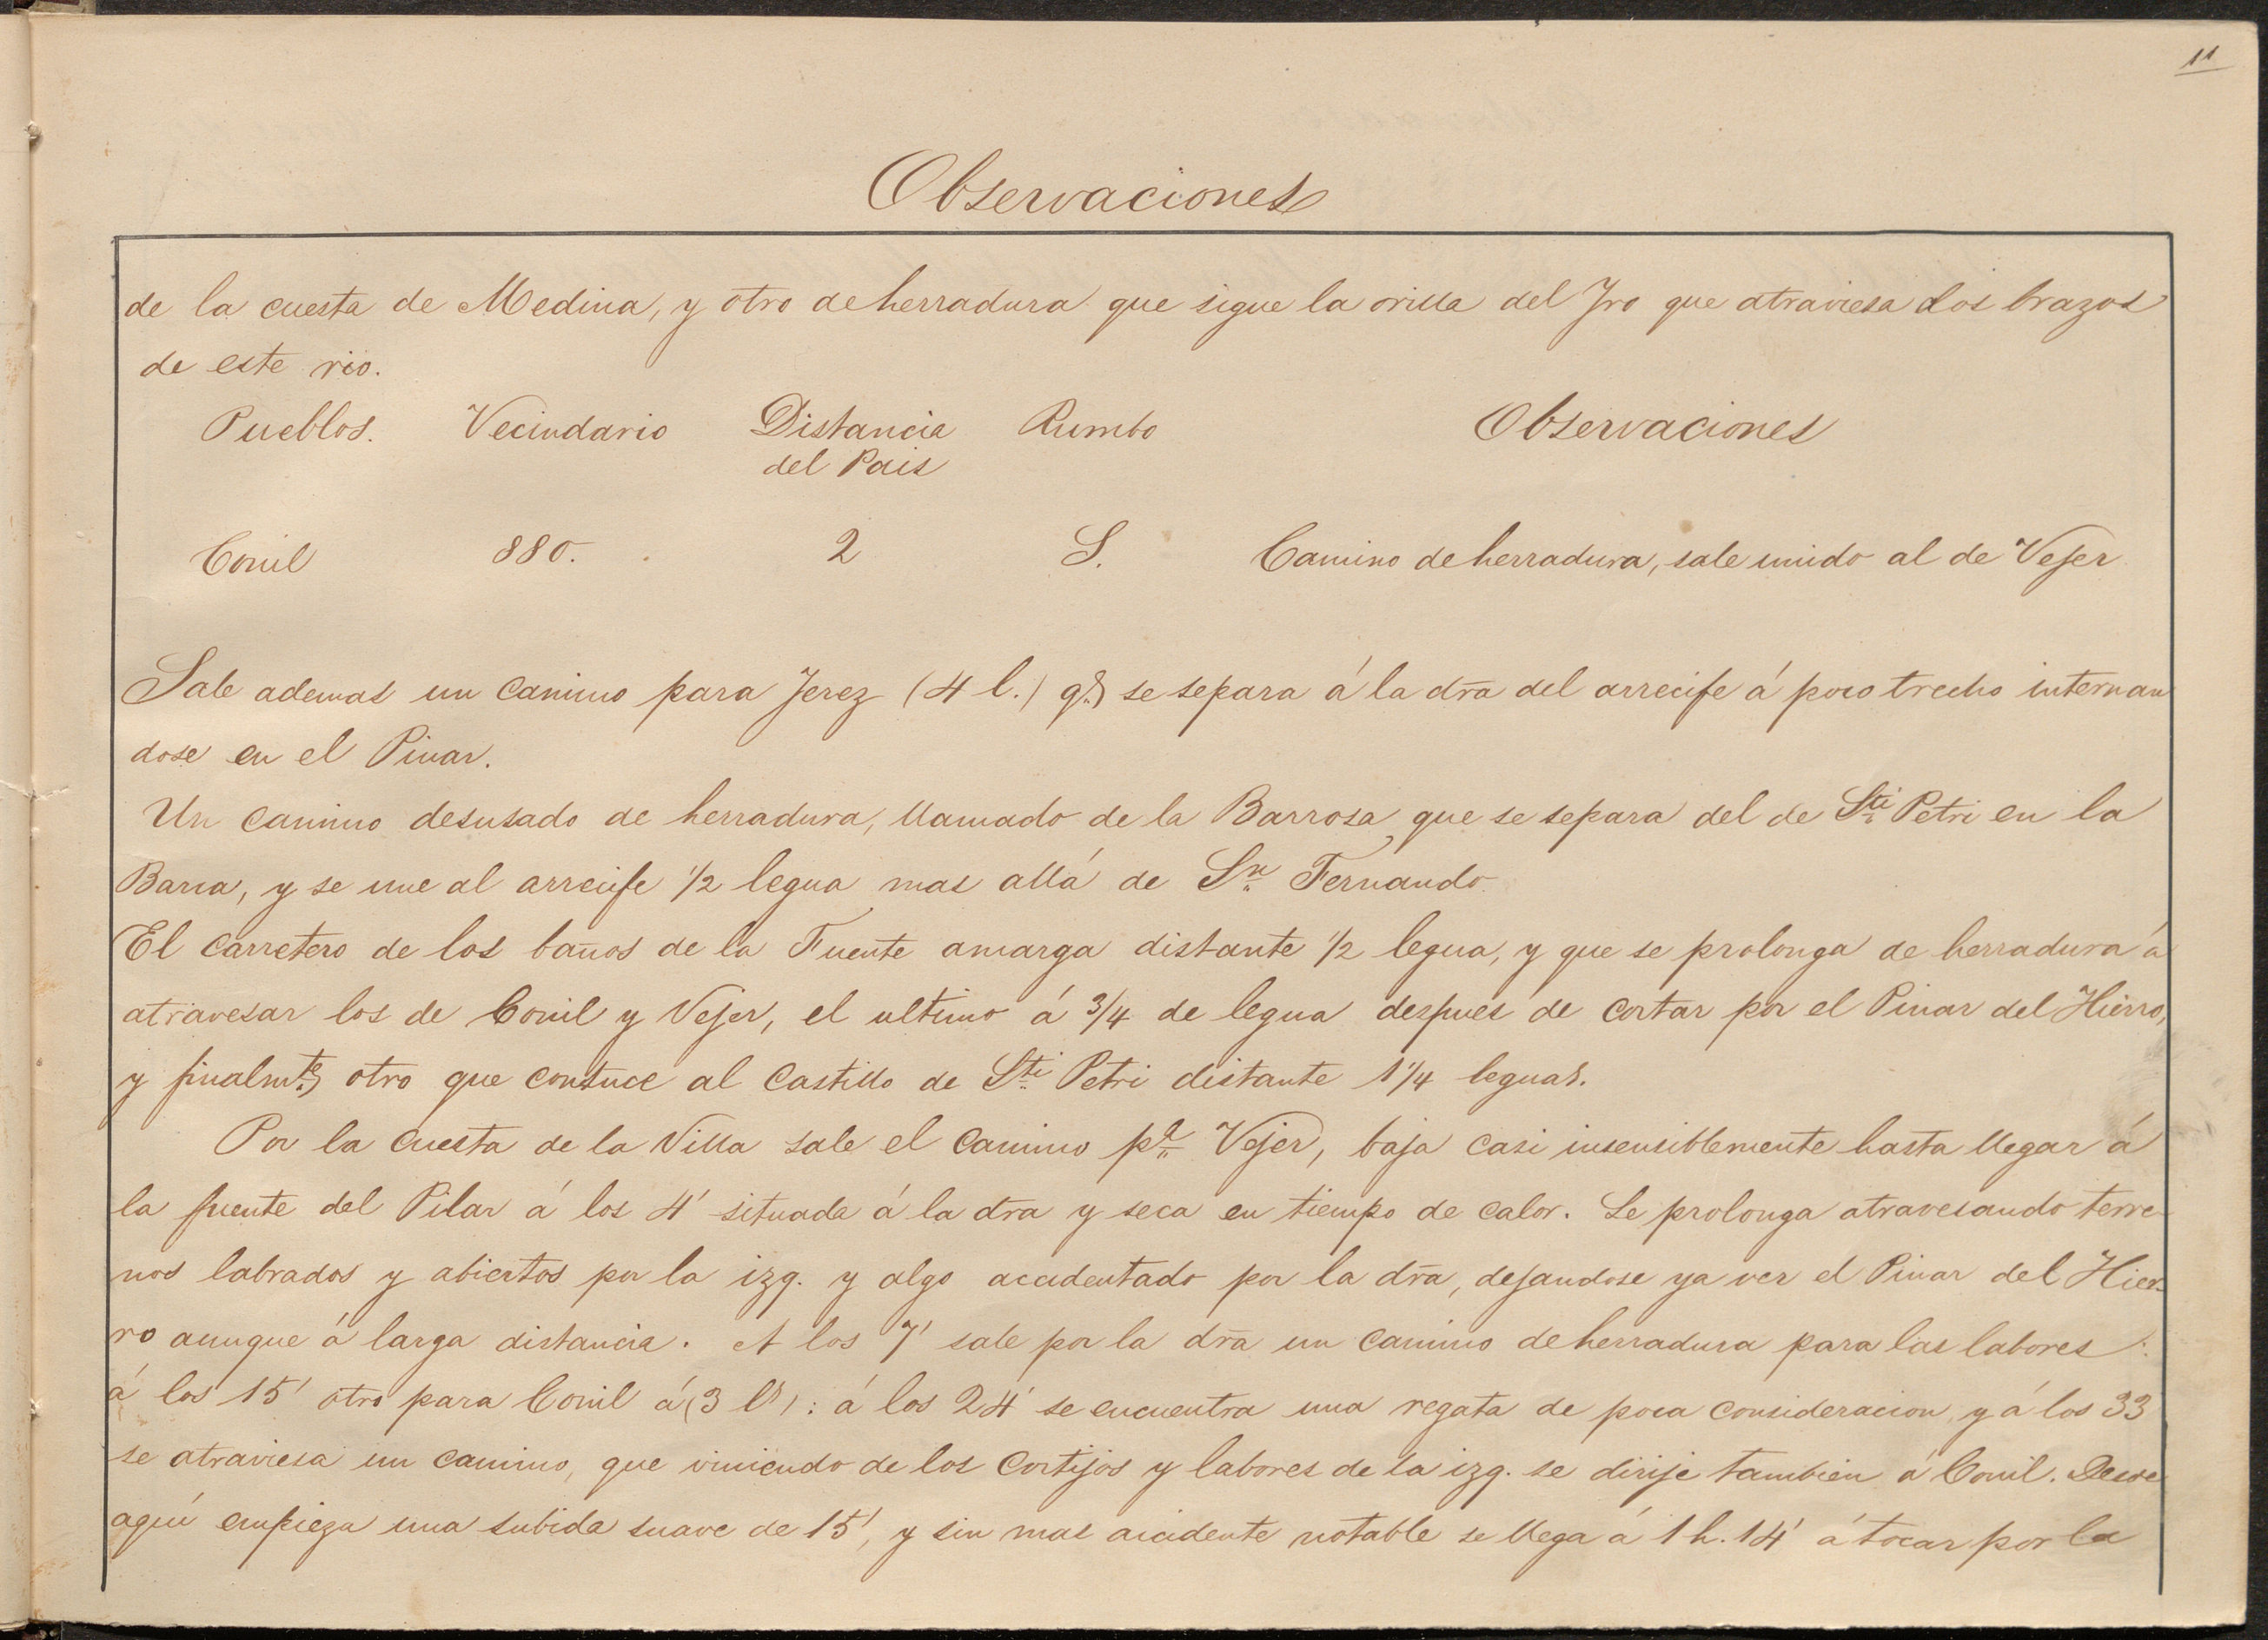 11
Observaciones
de la cuesta de Medina, y otro de herradura que sigue la orilla del Yro que atraviesa dos brazos
de este rio.
Pueblos. Vecindario Distancia del Pais Rumbo Observaciones
Conil 880. 2 S. Camino de herradura, sale unido al de Vejer
Sale ademas un camino para Jerez (4 l.) qe. se separa á la dra del arrecife á poco trecho internan
dose en el Pinar.
Un camino desusado de herradura, llamado de la Barrosa que se separa del de Sti Petri en la
Barca, y se une al arrecife 1/2 legua mas allá de Sn Fernando
El carretero de los baños de la Fuente amarga distante 1/2 legua, y que se prolonga de herradura á
atravesar los de Conil y Vejer, el ultimo á 3/4 de legua despues de cortar por el Pinar del Hierro,
y finalmte. otro que conduce al Castillo de Sti Petri distante 1 1/4 leguas.
Por la cuesta de la Villa sale el camino pa Vejer, baja casi insensiblemente hasta llegar á
la fuente del Pilar á los 4' situada á la dra y seca en tiempo de calor. Se prolonga atravesando terre-
nos labrados y abiertos por la izq. y algo accidentado por la dra, dejandose ya ver el Pinar del Hier-
ro aunque á larga distancia. A los 7' sale por la dra un camino de herradura para las labores:
á los 15' otro para Conil á (3 ls): á los 24' se encuentra una regata de poca consideracion y á los 33
se atraviesa un camino, que viniendo de los Cortijos y labores de la izq. se dirije tambien á Conil. Desde
aqui empieza una subida suave de 15', y sin mas accidente notable se llega á 1 h. 14' á tocar por la